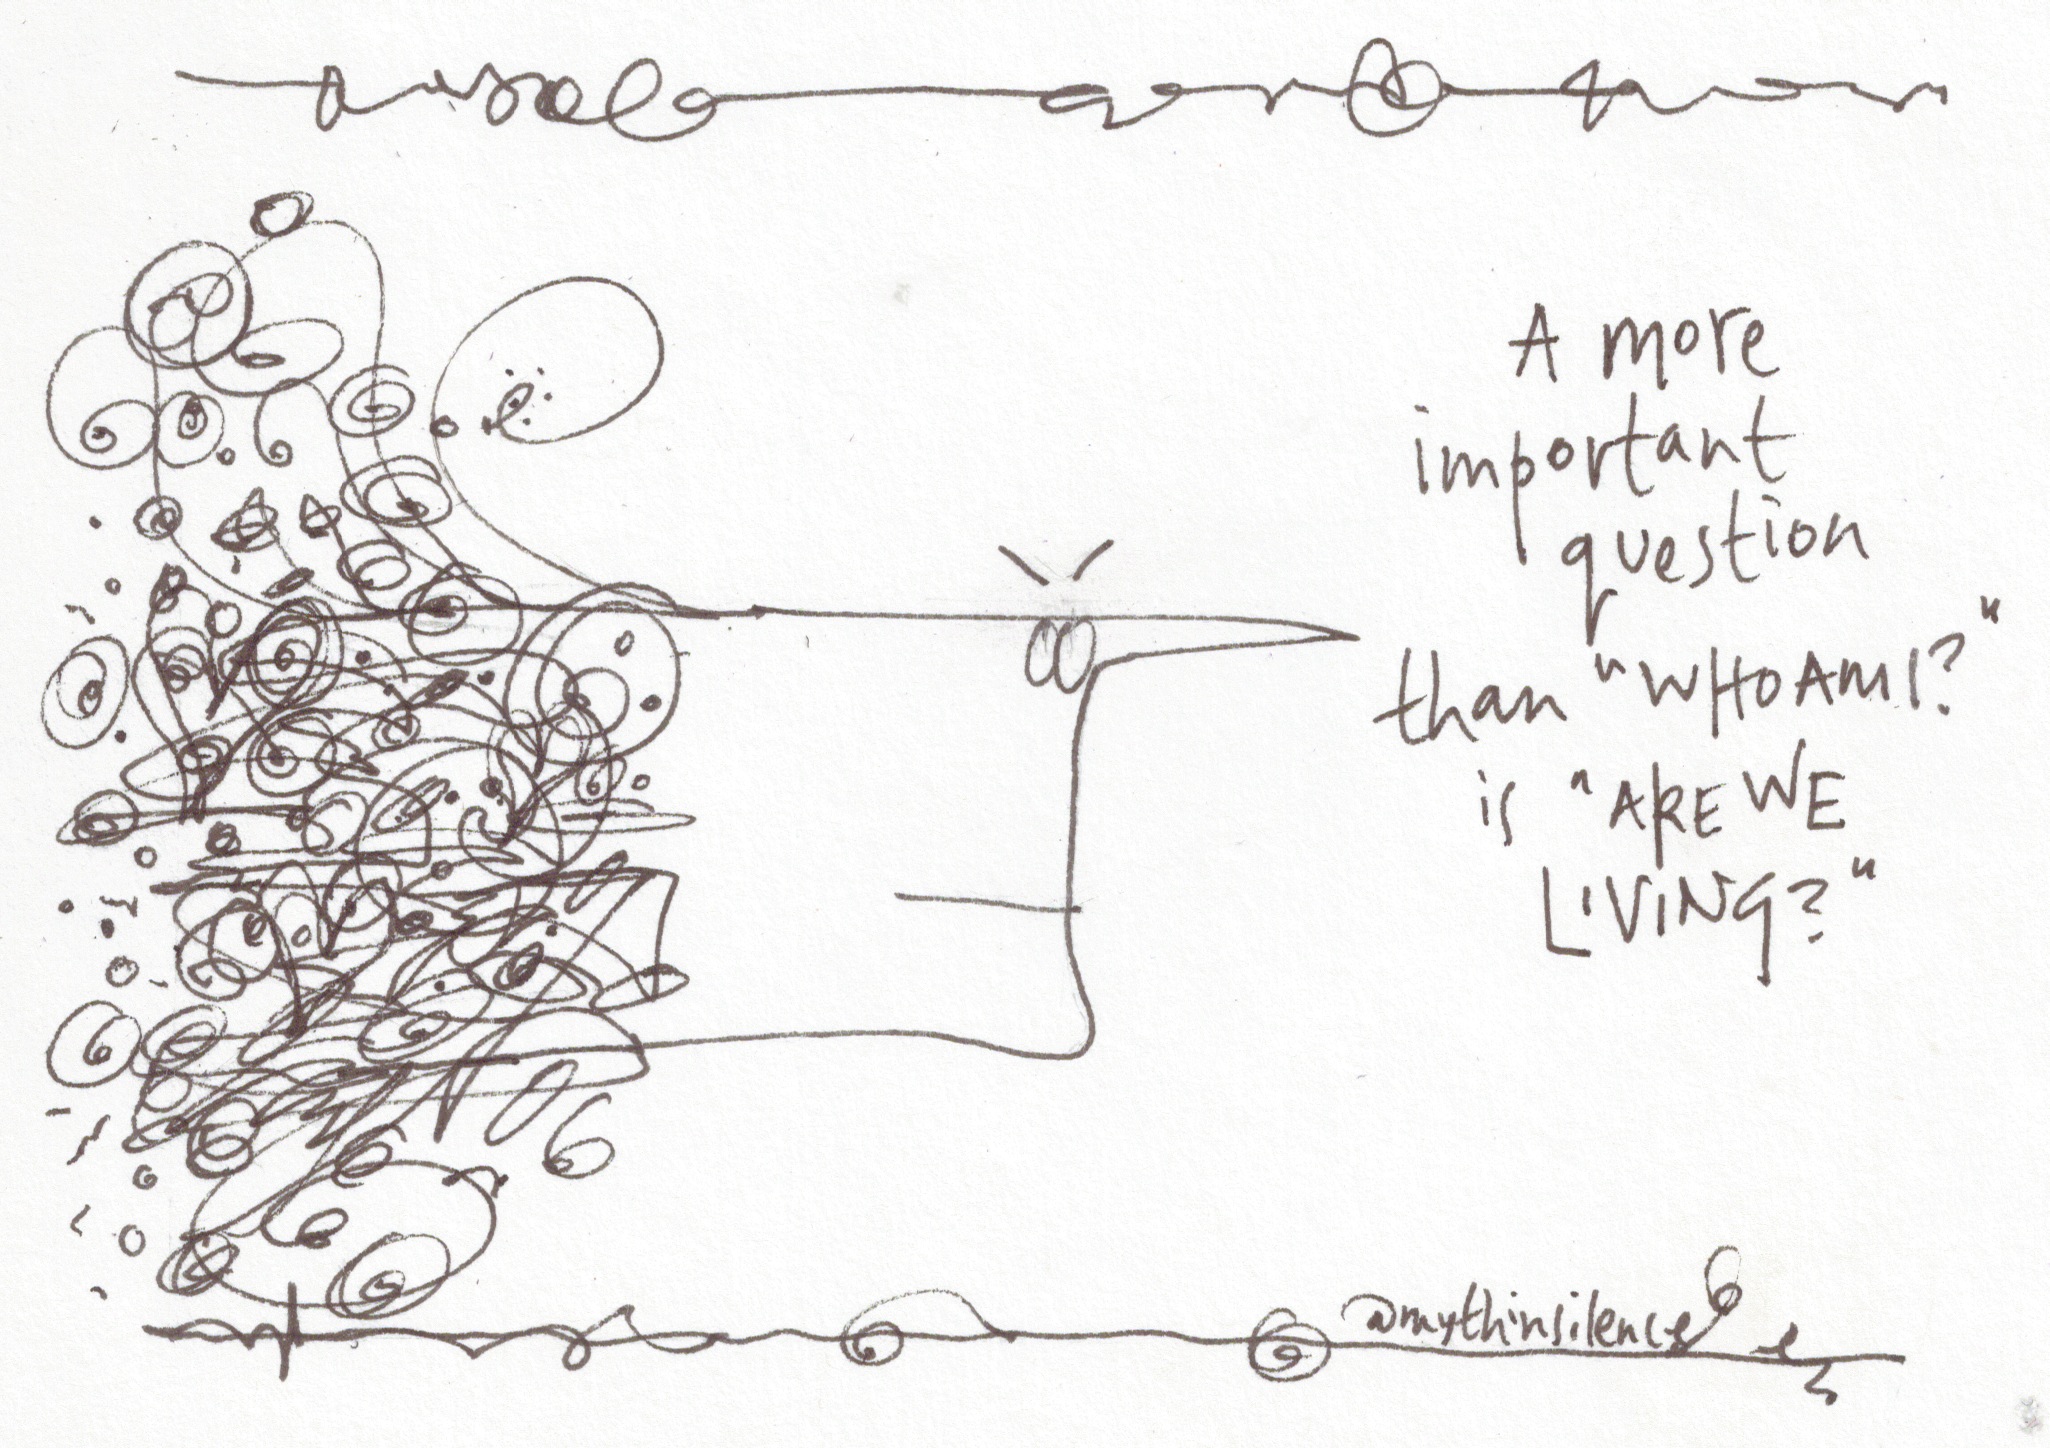 A more
important
question
than "WHO AM I?"
is "ARE WE
LIVING?"
@mythinsilence